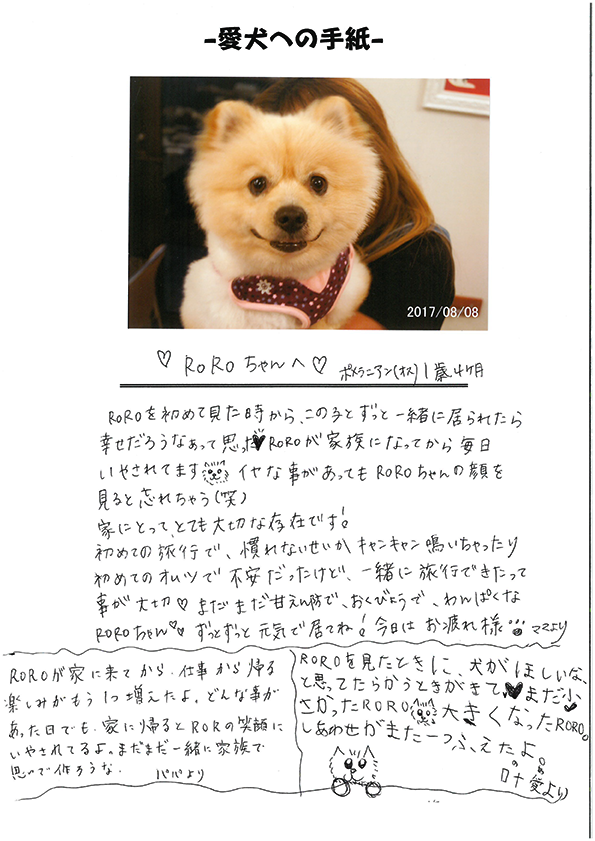 -愛犬への手紙-
2017/08/08
♡ RoRoちゃんへ♡ ポメラニアン(オス) 1歳4ヶ月
RoRoを初めて見た時から、この子とずっと一緒に居られたら
幸せだろうなぁって思った♥ROROが家族になってから毎日
いやされてます イヤな事があってもROROちゃんの顔を
見ると忘れちゃう(笑)
家にとって、とても大切な存在です!
初めての旅行で、慣れないせいかキャンキャン鳴いちゃったり
初めてのオムツで不安だったけど、一緒に旅行できたって
事が大切♡まだまだ甘えん坊で、おくびょうで、わんぱくな
ROROちゃん♡♡ずっとずっと元気で居てね!今日はお疲れ様!!! ママより
ROROが家に来てから、仕事から帰る
楽しみがもう1つ増えたよ。どんな事が
あった日でも、家に帰るとROROの笑顔に
いやされてるよ。まだまだ一緒に家族で
思い出作ろうな。 パパより
ROROを見たときに、犬がほしいな、
と思ってたらかうときがきて、♥まだ小
さかったRORO 大きくなったRORO。
しあわせがまた一つふえたよ。
叶愛より